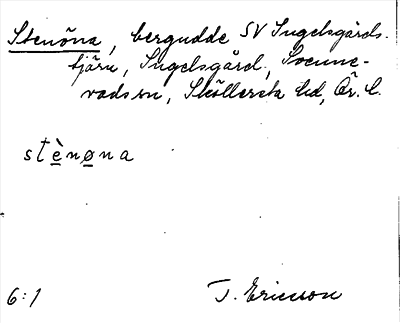 Stenöna, bergudde SV Ingelsgårds-
tjärn, Ingelsgård, Svenne-
vads sn, Sköllersta hd, Ör. l.
stènøna
6:1
T. Ericsson